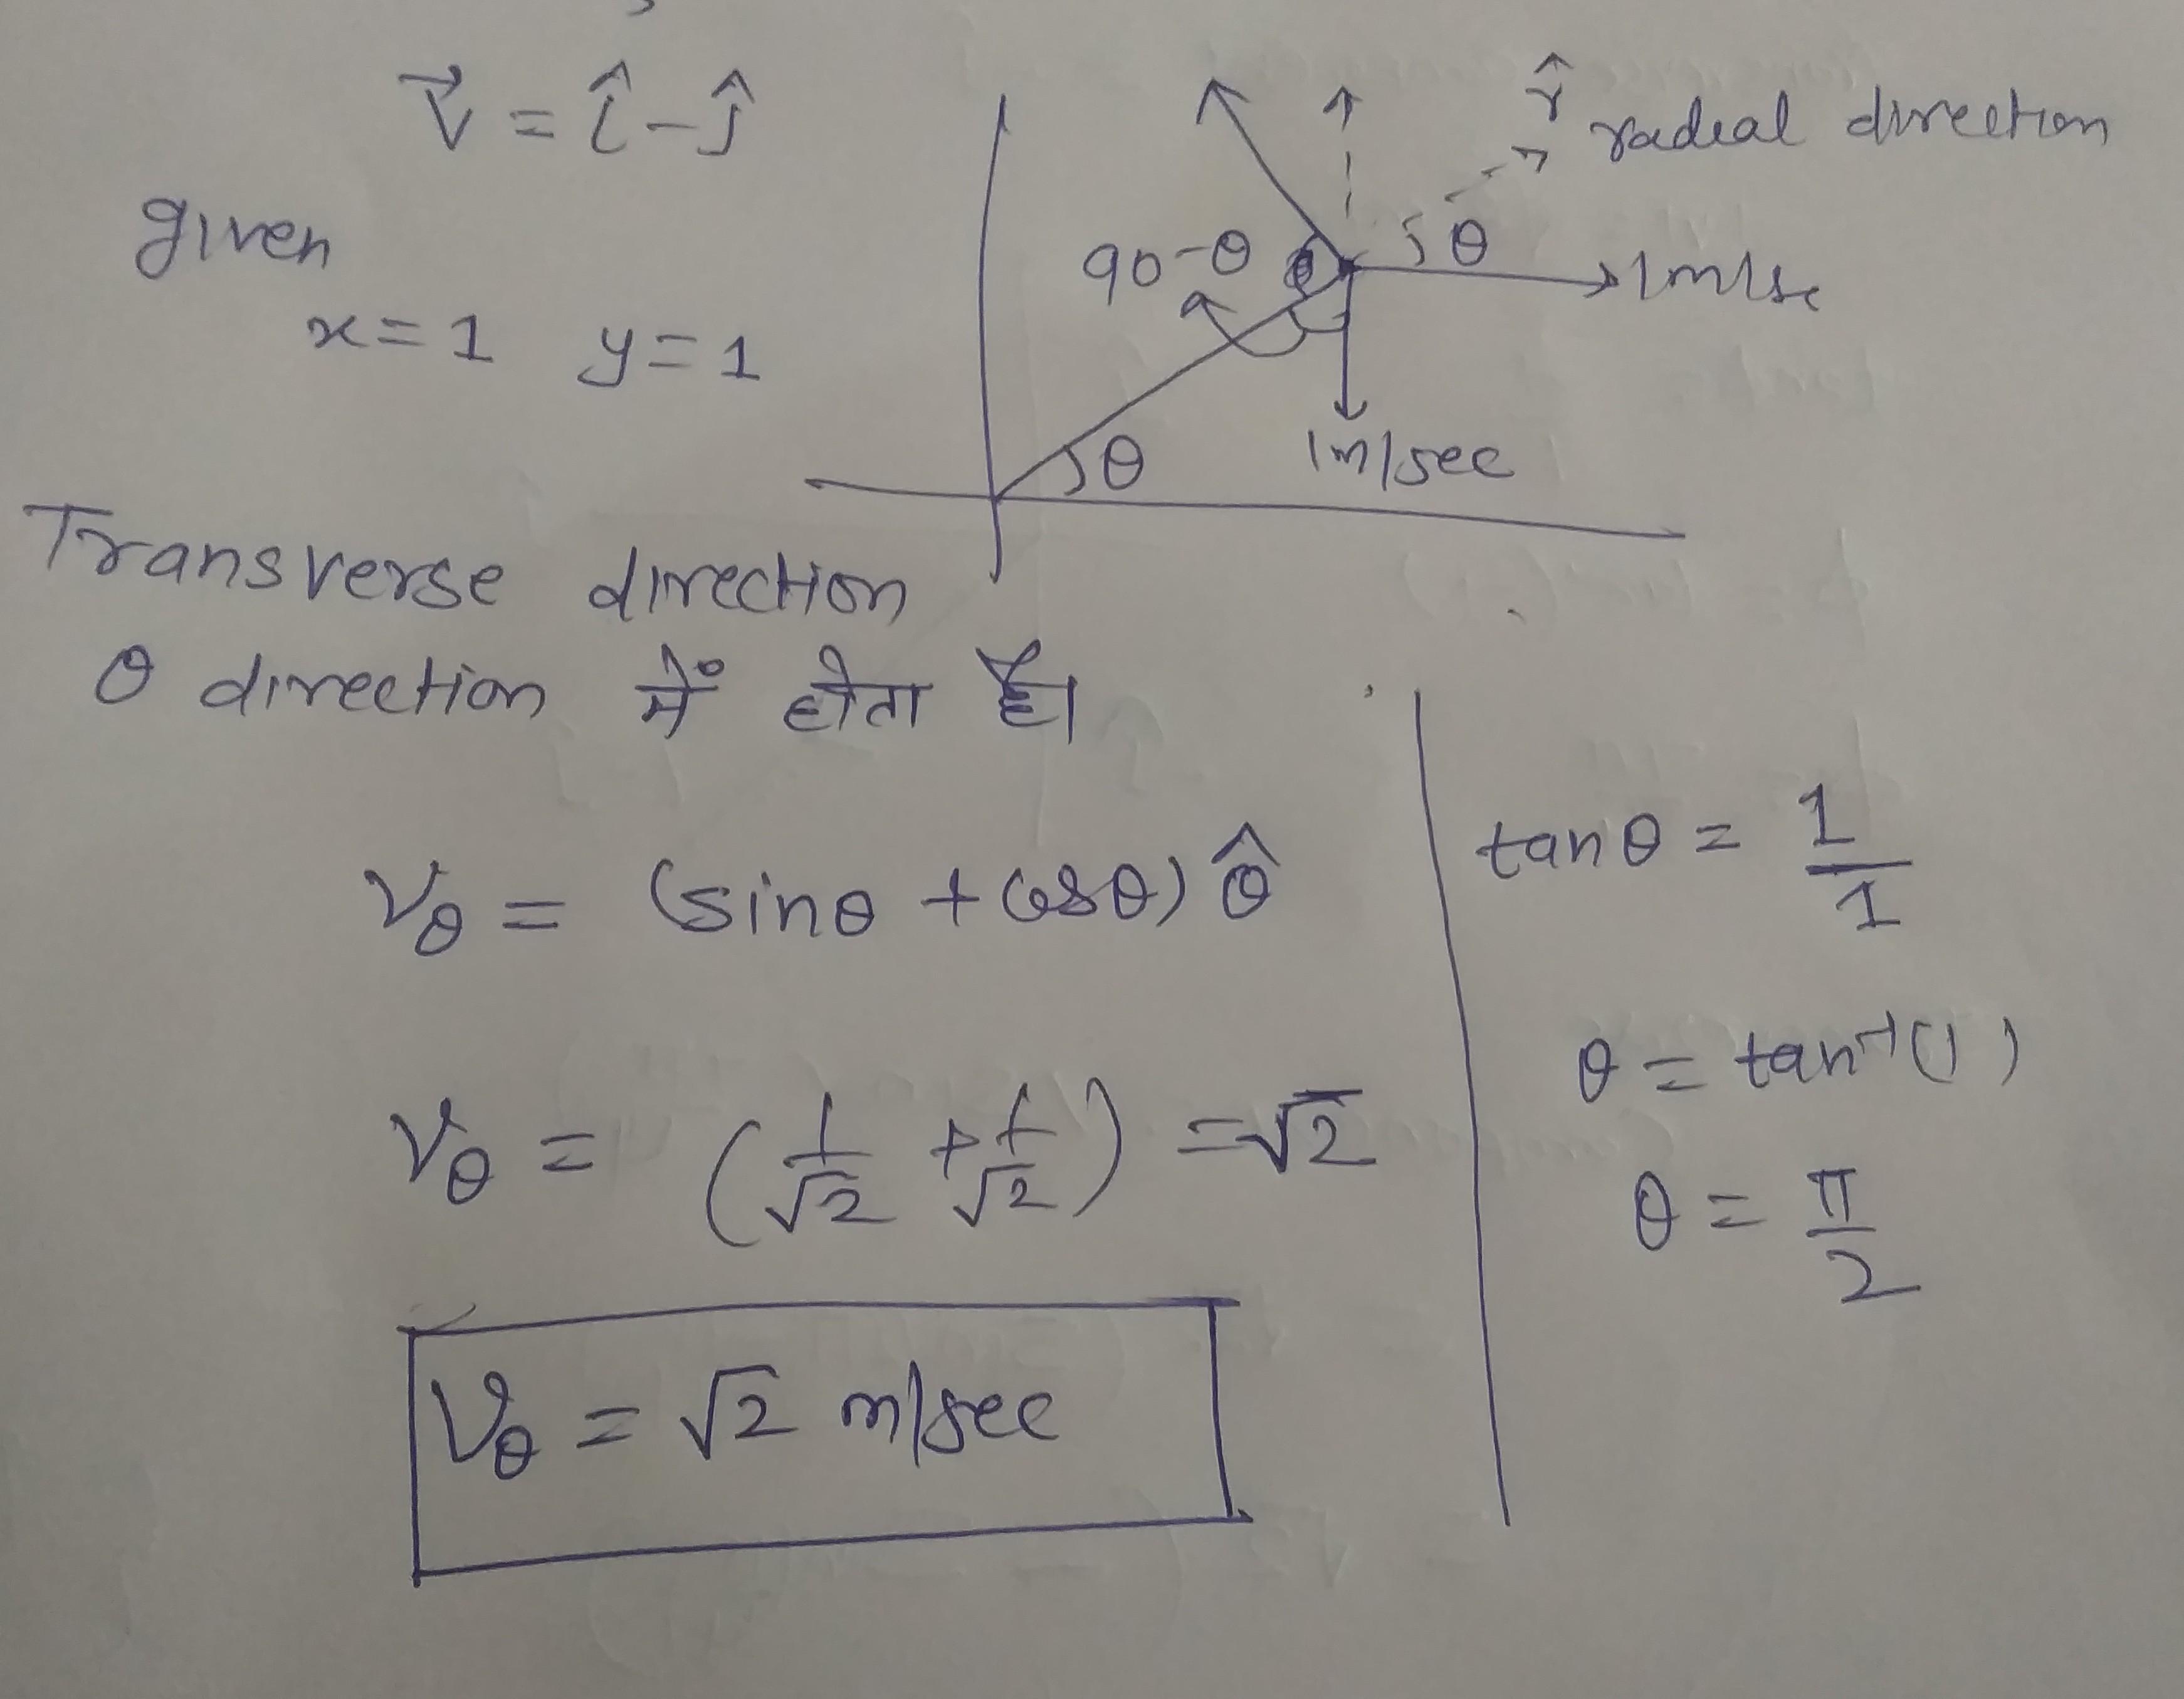 V⃗ = î - ĵ
given
x = 1 y = 1
r̂ radial direction
θ
90-θ
1m/se
1m/sec
θ
Transverse direction
θ direction में होता है।
Vθ = (sinθ + cosθ) θ̂
Vθ = (1/√2 + 1/√2) = √2
Vθ = √2 m/sec
tanθ = 1/1
θ = tan⁻¹(1)
θ = π/2